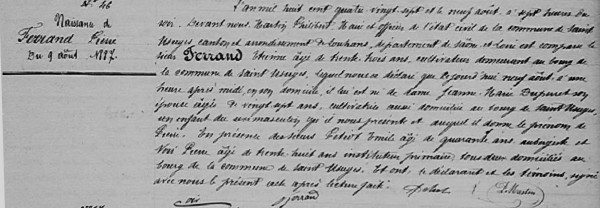 N° 46
Naissance de
Ferrand Pierre
Du 9 août 1887.
L'an mil huit cent quatre vingt sept et le neuf août à sept heures du
soir. Devant nous Martin Philibert Maire et officier de l'état civil de la commune de Saint
Usuges canton et arrondissement de Louhans, département de Saône et Loire est comparu le
sieur Ferrand Etienne âgé de trente trois ans, cultivateur demeurant au bourg de
la commune de Saint Usuges, lequel nous a déclaré que ce jourd'hui neuf août à une
heure après midi, en son domicile il lui est né de dame Jeanne Marie Duperret son
épouse âgée de vingt sept ans, cultivatrice aussi domiciliée au bourg de Saint Usuges,
un enfant du sexe masculin qu'il nous présente et auquel il donne le prénom de
Pierre. En présence des sieurs Petiot Emile âgé de quarante ans, aubergiste et
Voir Pierre âgé de trente huit ans instituteur primaire, tous deux domiciliés au
bourg de la commune de Saint Usuges. Et ont le déclarant et les témoins, signé
avec nous le présent acte après lecture faite.
Ferrand